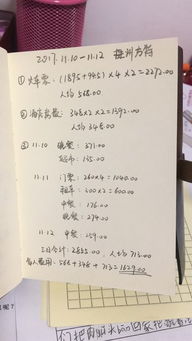 2017.11.10—11.12 株洲方特
① 火车票：(189.5+94.5)×4×2=2272.00
人均 568.00
② 酒店房费：348×2×2=1392.00
人均 348.00
③ 11.10 晚餐：371.00
135.00
11.11 门票：260×4=1040.00
租车：300×2=600.00
中餐：176.00
晚餐：274.00
11.12 中餐：259.00
三日合计：2855.00，人均 713.00
每人费用：568+348+713=1629.00
们把
回家